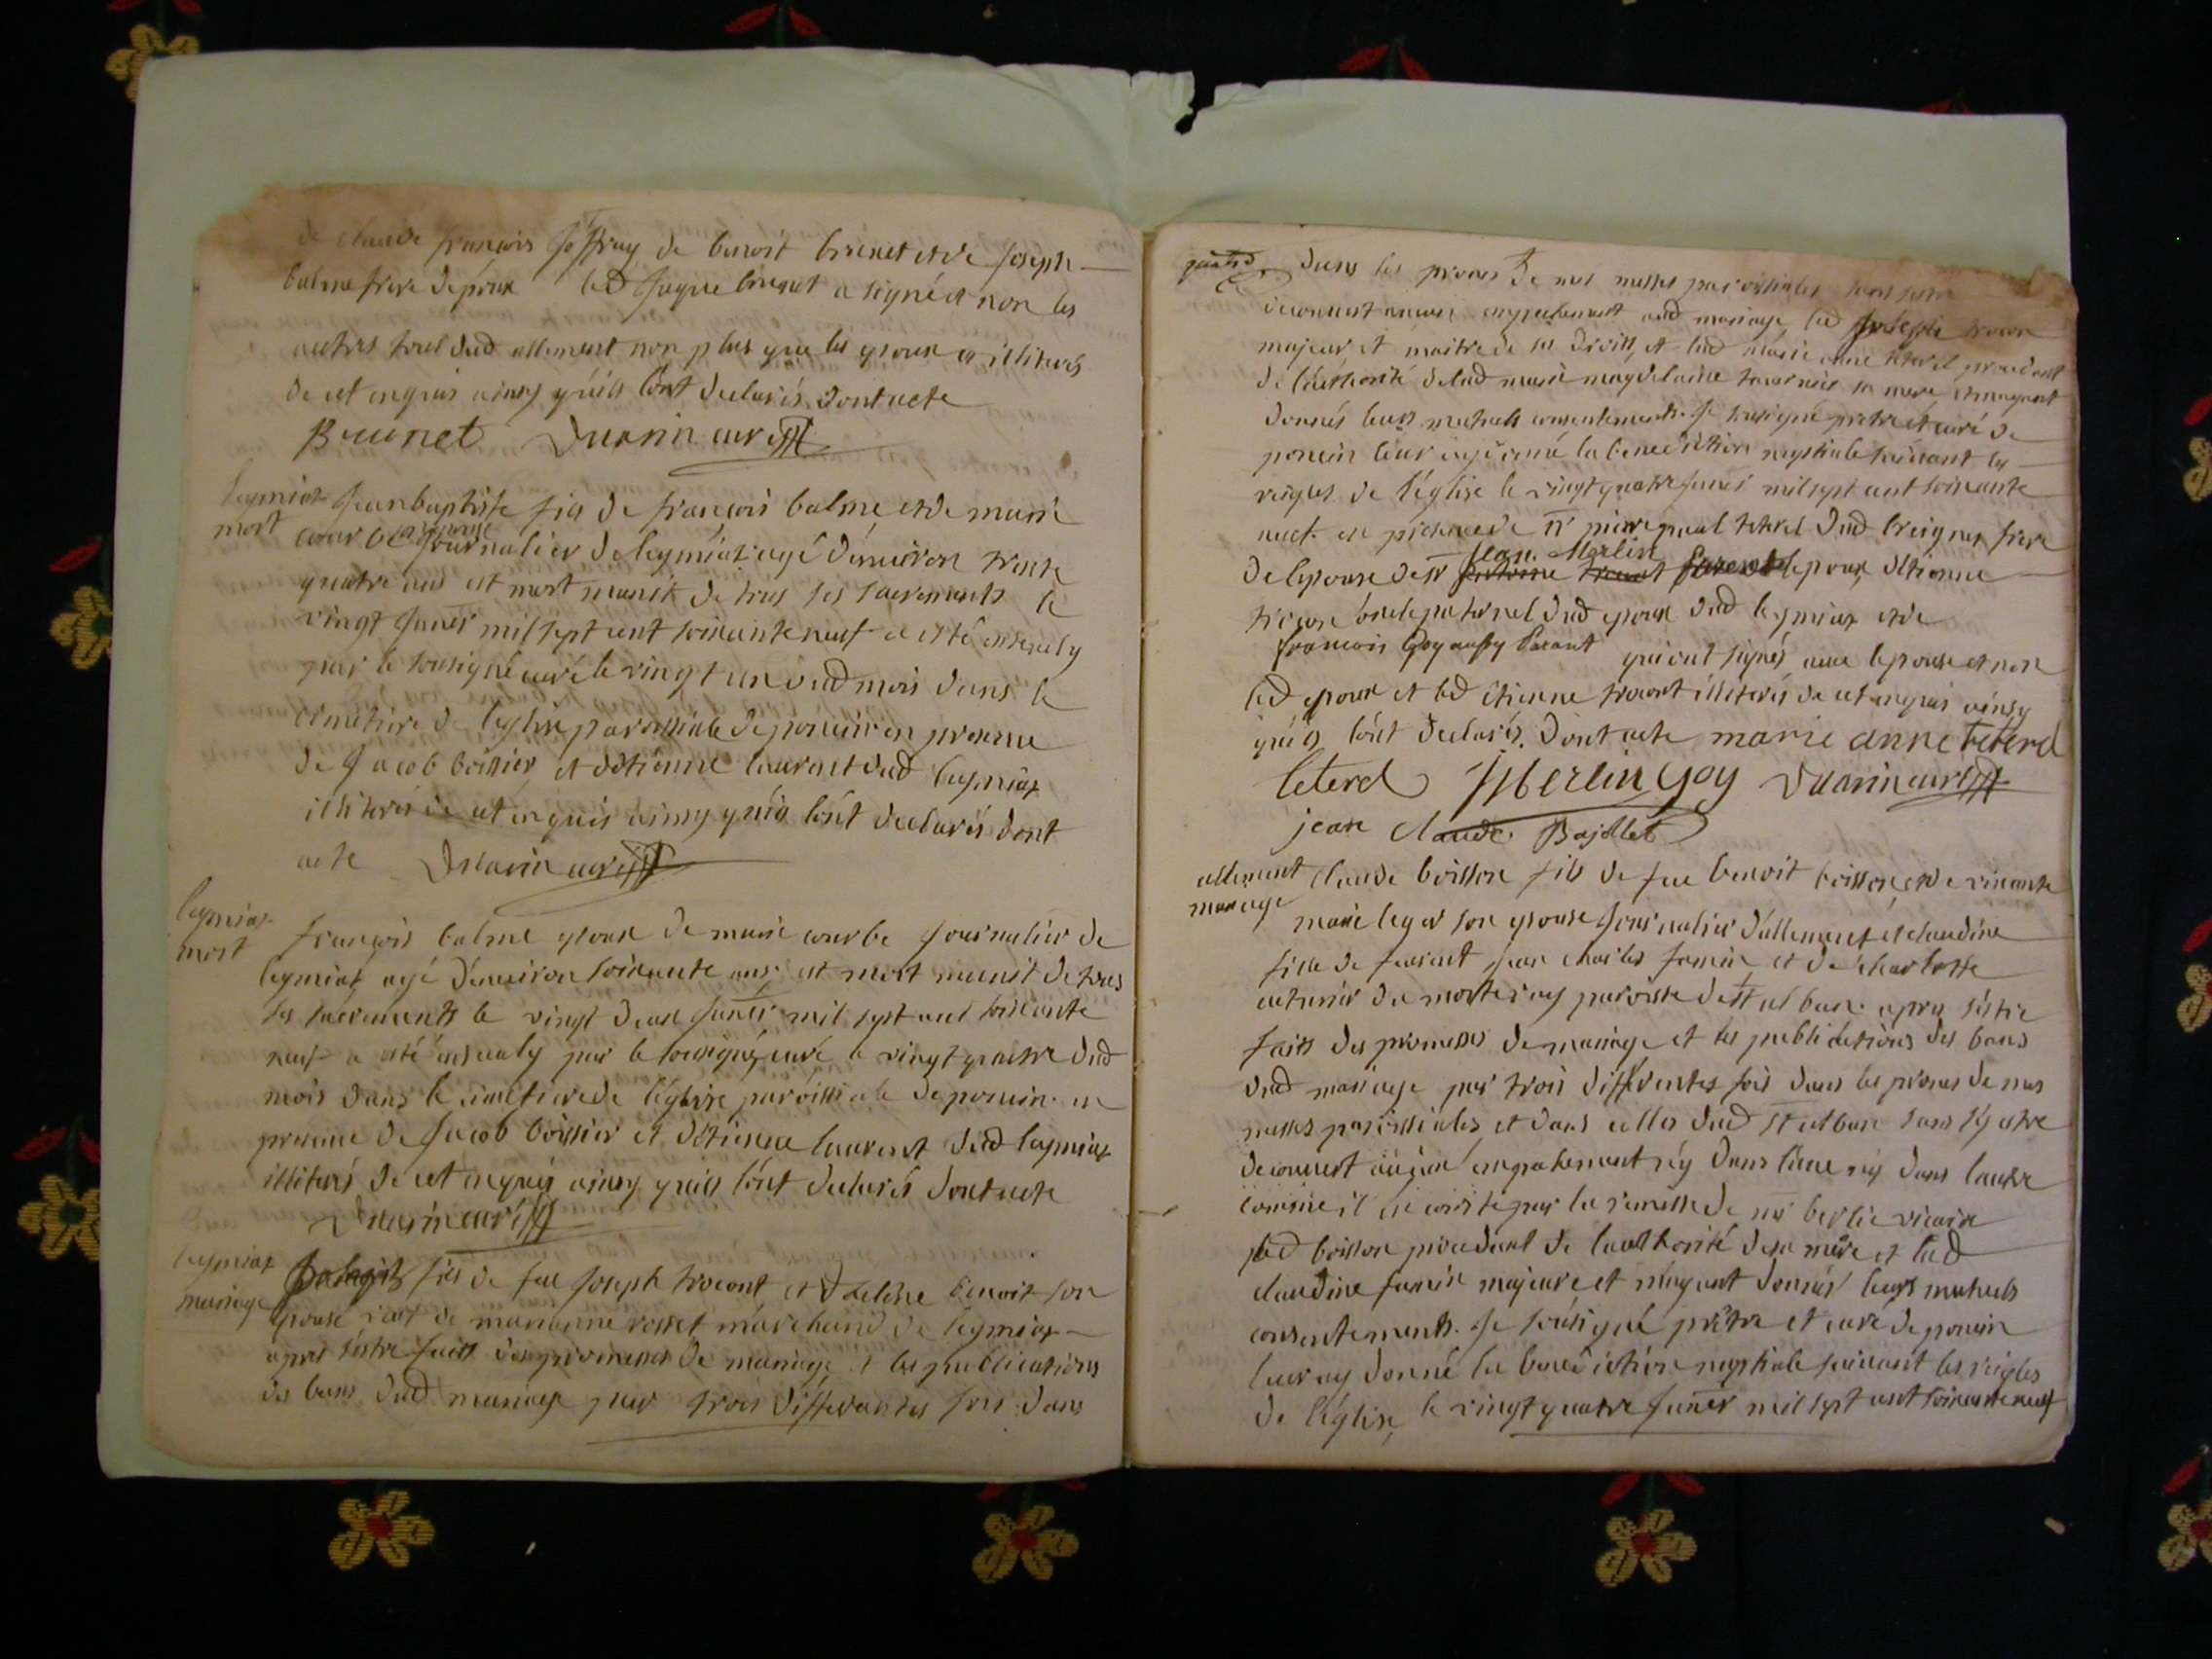 de claude françois Joffray de benoit brunet et de joseph
balme frere dépoux led jaque brunet a signé et non les
autres tous dud allement non plus que les epoux illiterés
de cet enquis ainsy quils lont declarés dont acte
Brunet Duarin curé
leymiat jean baptiste fils de françois balme et de marie
mort courbe son epouse journalier de leymiat agé d'environ trente
quatre ans est mort munit de tous ses sacrements le
vingt janer mil sept cent soixante neuf a esté ensevely
par le sousigné curé le vingt un dud mois dans le
cimetiere de leglise paroissiale de poncin en presence
de jacob boissier et detienne laurent dud leymiat
illiterés de cet enquis ainsy quils lont declarés dont
acte Duarin curé
leymiat
mort françois balme epoux de marie courbe journalier de
leymiat agé denviron soixante ans est mort munit de tous
ses sacrements le vingt deux janer mil sept cent soixante
neuf a esté ensevely par le sousigné curé le vingt quatre dud
mois dans le cimetiere de léglise paroissiale de poncin en
presence de jacob boissier et detienne laurent dud leymiat
illiterés de cet enquis ainsy quils lont declarés dont acte
Duarin curé
leymiat fils de feu joseph trocont et benoit son
mariage epouse de marianne rosset marchand de leymiat
apres sestre faitt des promesses de mariage et les publications
des bans dud mariage par trois differantes fois dans
dans les prones de nos messes paroissiales sans sestre
decouvert aucun empechement aud mariage led trocon
majeur et maitre de ses droitts et lad marie anne teterel procedant
de lauthorité de lad marie magdelaine sa mere et mayant
donnés leurs mutuels consentements. Je sousigné pretre et curé de
poncin leur ay donné la benediction nuptiale suivant les
reigles de léglise le vingt quatre janer mil sept cent soixante
neuf. en presence de sr pierre paul teterel dud breignes frere
de lepouse de sr jean Merlin parent de lepoux, detienne
trocon oncle paternel dud epoux dud leymiat et de
francois Goy parant qui ont signés avec lepouse et non
led epoux et led etienne trocont illiterés de cet enquis ainsy
quils lont declarés. dont acte marie anne teterel
leterel JMerlin Goy Duarin curé
jean claude Bajollet
allement claude boisson fils de feu benoit boisson et de vivante
mariage marie leger son epouse journalier dallement et claudine
fille de jean charles famin et de charlotte
de morteray paroisse de st alban. apres sestre
faitt des promesses de mariage et les publications des bans
dud mariage par trois differentes fois dans les prones de nos
messes paroissiales et dans celles dud st alban sans sy estre
decouvert aucun empechement ny dans lune ny dans lautre
comme il en conste par la remisse de mr berlie vicaire
led boisson procedant de lauthorité de sa mere et lad
claudine famin majeure et mayant donnés leurs mutuels
consentements. Je sousigné prêtre et curé de poncin
leur ay donné la benediction nuptiale suivant les reigles
de léglise, le vingt quatre janer mil sept cent soixante neuf